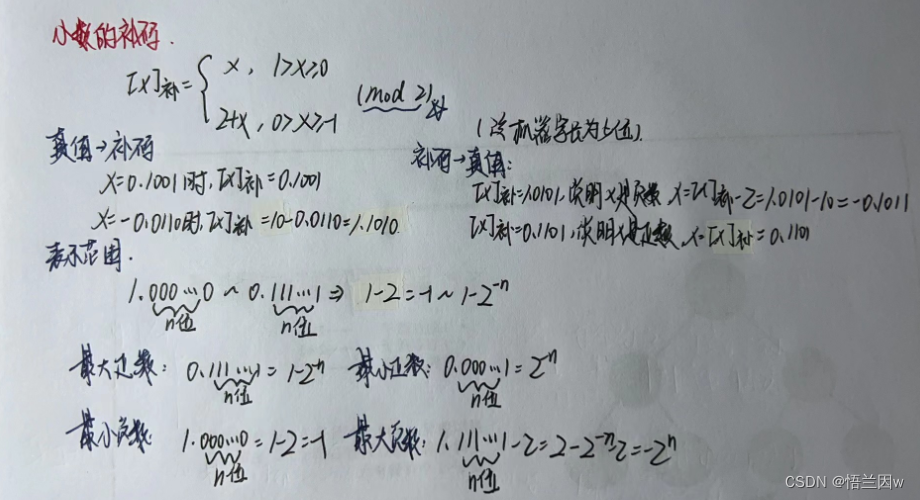 小数的补码.
[x]补 = { x, 1>x≥0
2+x, 0>x≥-1 (mod 2)
(设机器字长为5位).
真值→补码
x=0.1001时, [x]补=0.1001
x=-0.0110时, [x]补=10-0.0110=1.1010.
补码→真值:
[x]补=1.0101, 说明x是负数, x=[x]补-2=1.0101-10=-0.1011
[x]补=0.1101, 说明x是正数, x=[x]补=0.1101
表示范围.
1.000…0 ~ 0.111…1 ⇒ 1-2=-1 ~ 1-2^-n
n位 n位
最大正数: 0.111…1=1-2^-n 最小正数: 0.000…1=2^-n
n位 n位
最小负数: 1.000…0=1-2=-1 最大负数: 1.111…1-2=2-2^-n-2=-2^-n
n位 n位
CSDN @悟兰因w